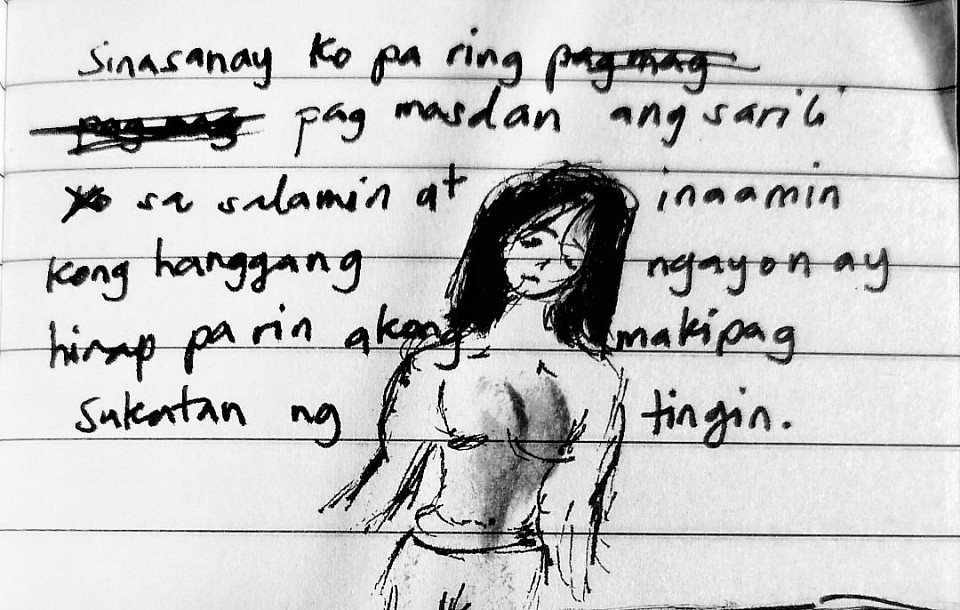 sinasanay ko pa ring pagmag
pag mag pag masdan ang sarili
ko sa salamin at inaamin
kong hanggang ngayon ay
hirap pa rin akong makipag
sukatan ng tingin.